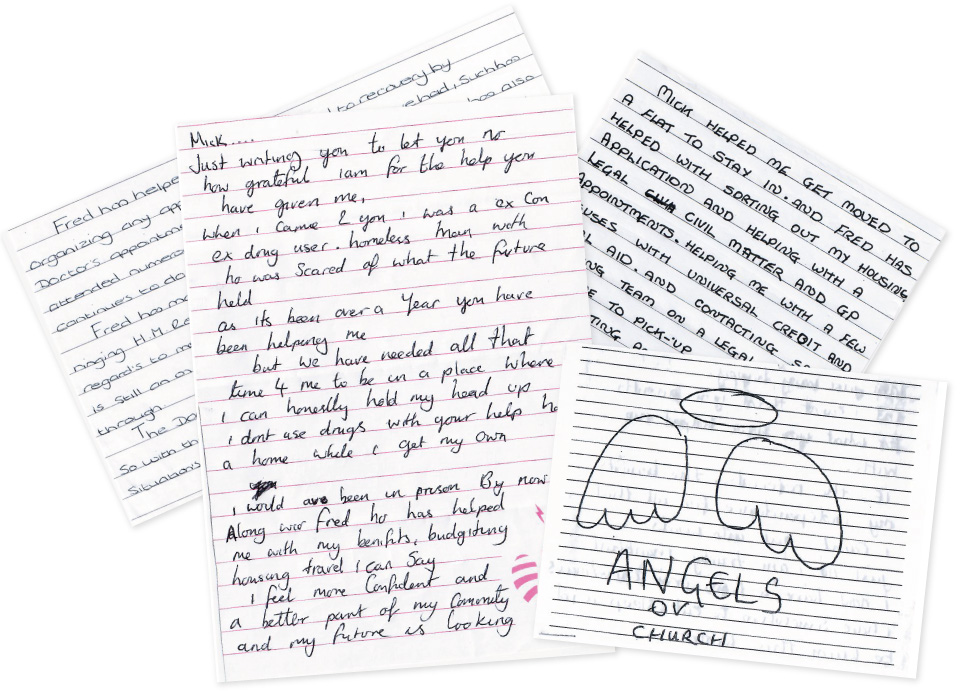 to recovery by
had, such has
has also
Fred has helpe
organizing any app
Doctor's appointm
attended numero
continues to do
Fred has mo
ringing H.M. Re
regard's to m
is still on a
through
The Do
So with th
Situations
Mick....
Just writing you to let you no
how grateful iam for the help you
have given me,
when i came 2 you i was a ex con
ex drug user. homeless man with
ho was scared of what the future
held
as its been over a year you have
been helpeing me
but we have needed all that
time 4 me to be in a place where
i can honestly hold my head up
i dont use drugs with your help he
a home while i get my own
i would ave been in prison By now
Along wiv Fred ho has helped
me with my benifits, budgiting
housing travel i can say
i feel more confident and
a better part of my Comunity
and my future is looking
MICK HELPED ME GET MOVED TO
A FLAT TO STAY IN. AND FRED HAS
HELPED WITH SORTING OUT MY HOUSING
APPLICATION AND HELPING WITH A
LEGAL CIVIL MATTER AND GP
APPOINTMENTS. HELPING ME WITH A FEW
USES WITH UNIVERSAL CREDIT AND
L AID. AND CONTACTING S
NG TEAM ON A LEGAL
E TO PICK-UP
TING A
ANGELS
OV
CHURCH